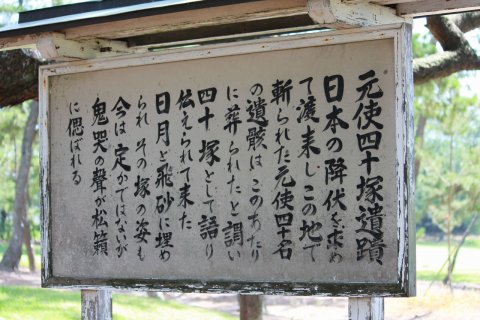 元使四十塚遺蹟
日本の降伏を求め
て渡来しこの地で
斬られた元使四十名
の遺骸は このあたり
に葬られたと謂い
四十塚として語り
伝えられて来た
日月と飛砂に埋め
られ その塚の姿も
今は 定かではないが
鬼哭の聲が松籟
に偲ばれる